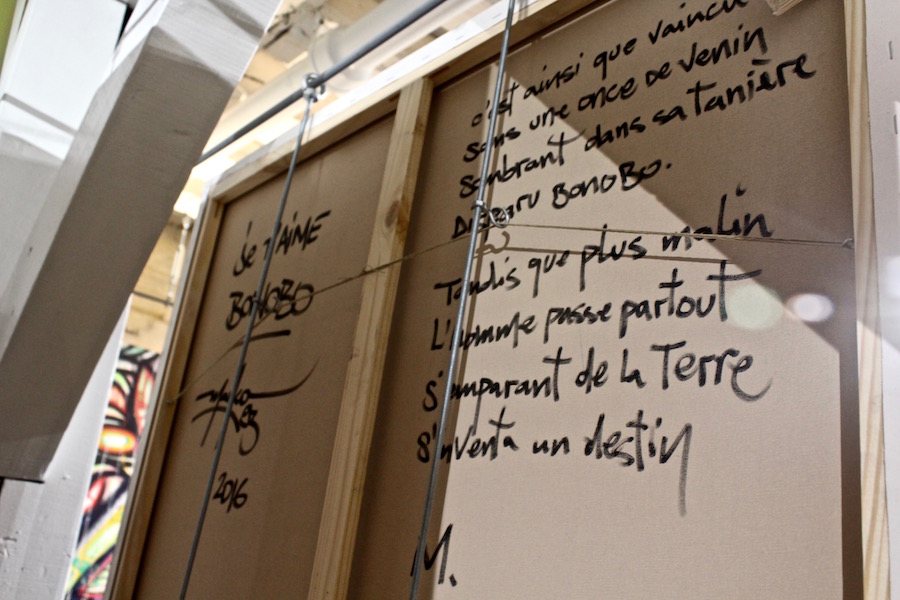 Je t'AIME
BONOBO
Marko
93
2016
c'est ainsi que vaincu
sans une once de venin
Sombrant dans sa tanière
Disparu BONOBO.
Tandis que plus malin
L'homme passe partout
S'emparant de la Terre
S'inventa un destin
M.